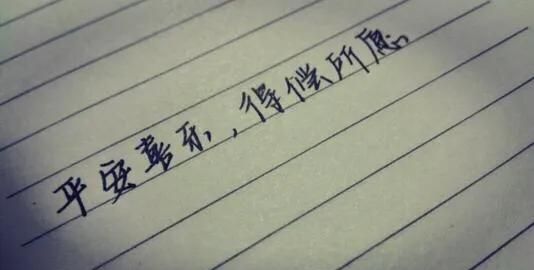 平安喜乐，得偿所愿